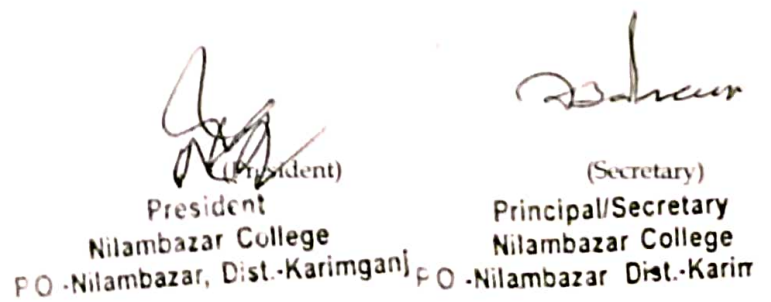 (President)
President
Nilambazar College
P O -Nilambazar, Dist.-Karimganj
(Secretary)
Principal/Secretary
Nilambazar College
P O -Nilambazar Dist.-Karim